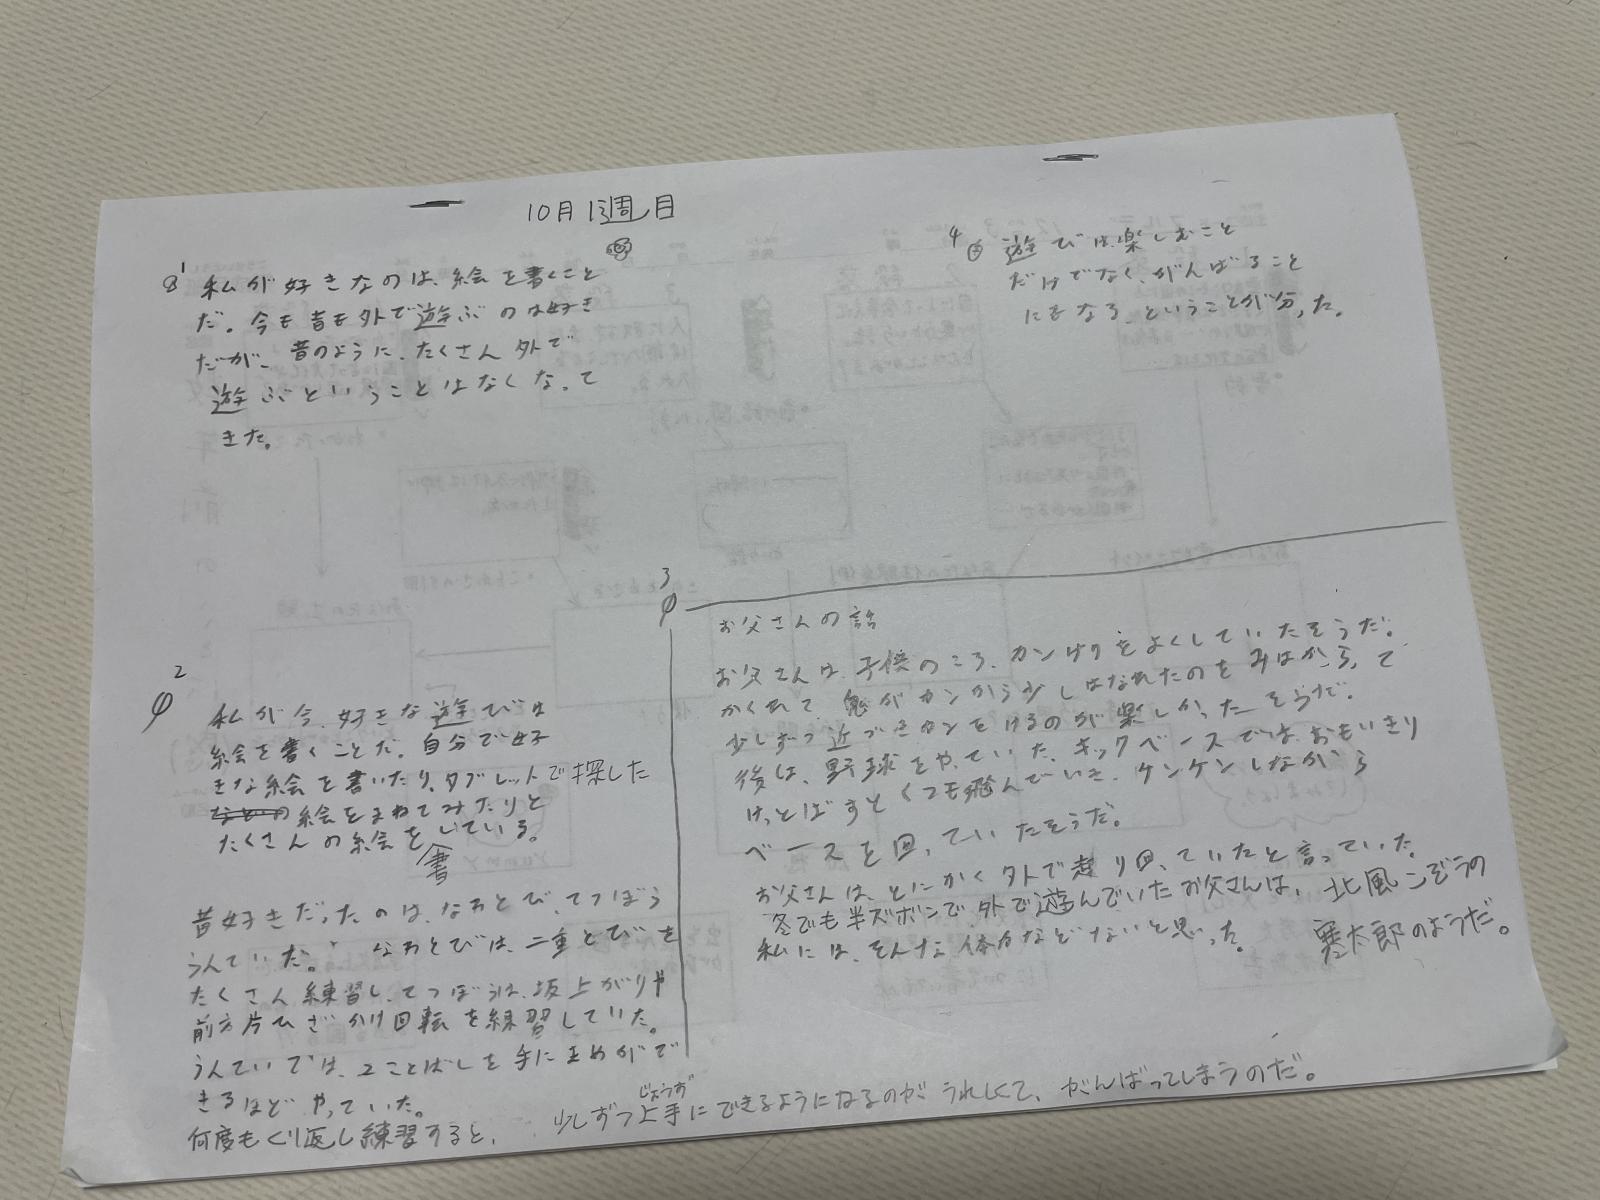 10月1週目
1
私が好きなのは、絵を書くこと
だ。今も昔も外で遊ぶのは好き
だが、昔のように、たくさん外で
遊ぶということはなくなって
きた。
2
私が今、好きな遊びは
絵を書くことだ。自分で好
きな絵を書いたり、タブレットで探した
絵をまねてみたりと
たくさんの絵を書いている。
昔好きだったのは、なわとび、てつぼう
うんていだ。なわとびは、二重とびを
たくさん練習し、てつぼうは、坂上がりや
前方片ひざかけ回転を練習していた。
うんていでは、2ことばしを手にまめがで
きるほどやっていた。
何度もくり返し練習すると、少しずつ上手にできるようになるのがうれしくて、がんばってしまうのだ。
じょうず
3
お父さんの話
お父さんは、子供のころ、カンけりをよくしていたそうだ。
かくれて、鬼がカンから少しはなれたのをみはからって
少しずつ近づきカンをけるのが楽しかったそうだ。
後は、野球をやっていた。キックベースでは、おもいきり
けっとばすとくつも飛んでいき、ケンケンしながら
ベースを回っていたそうだ。
お父さんは、とにかく外で走り回っていたと言っていた。
冬でも半ズボンで外で遊んでいたお父さんは、北風こぞうの
寒太郎のようだ。
私には、そんな体力などないと思った。
4
遊びは楽しむこと
だけでなく、がんばること
にもなる、ということが分かった。